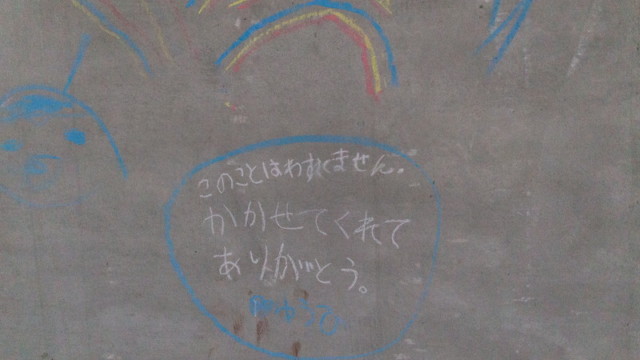 このことはわすれません。
かかせてくれて
ありがとう。